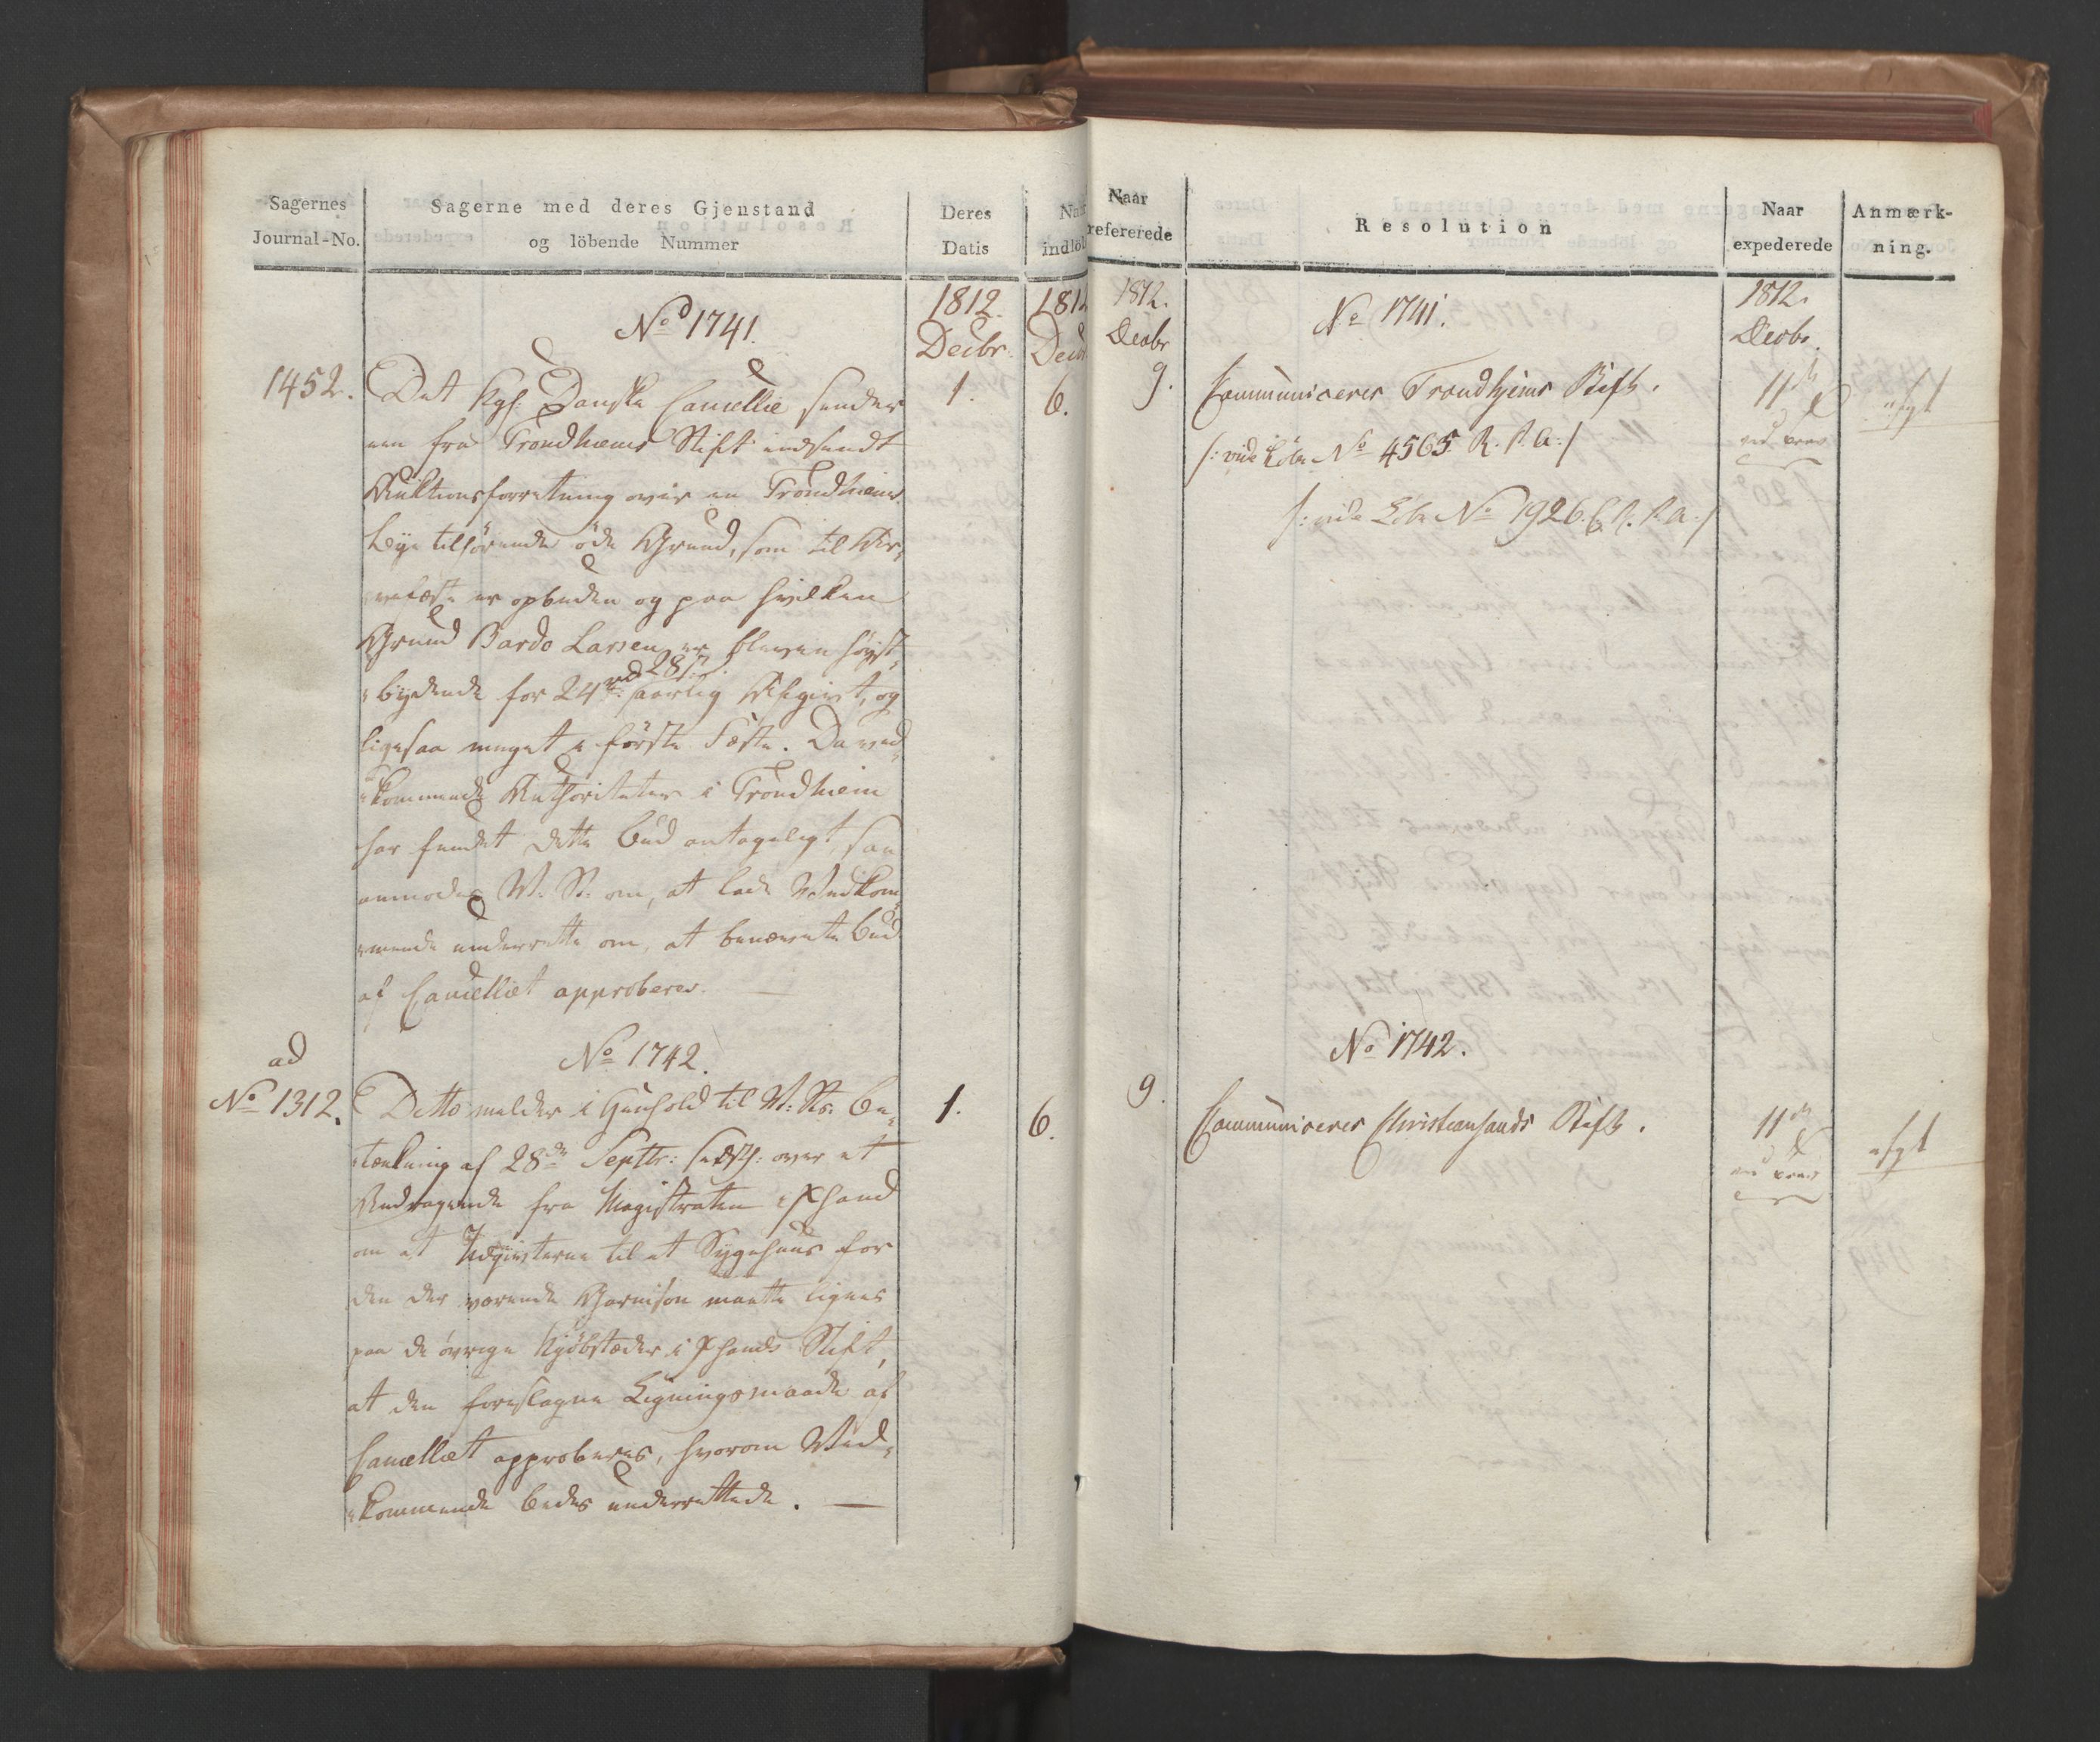 Sagernes
Journal-No.
Sagerne med deres Gjenstand
og löbende Nummer
Deres
Datis
Naar
indlöb
1812.
Decbr.
1812
Decbr
No 1741.
1452.
Det Kgl: Danske Cancellie sender
1.
6.
een fra Trondhiems Stift indsendt
Auktionsforretning over en Trondhiems
Bye tilhörende öde Grund, som til Ar-
vefæste er opbuden og paa hvilken
Grund Bardo Larsen er bleven höyst-
bydende for 24 rd 28 s aarlig Afgivt, og
ligesaa meget i förste Fæste. Da ved-
kommende Authoriteter i Trondhiem
har fundet dette Bud antageligt, saa
anmodes V: St: om, at lade Vedkom-
mende underrette om, at benævnte Bud
af Cancelliet approberes. —
No 1742.
ad
No 1312.
Ditto melder i Henhold til V: Sts: Be-
1.
6.
tænkning af 28de Septbr: sidstl: over et
Andragende fra Magistraten i Xsand
om at Udgivterne til et Sygehuus for
den der værende Garnison maatte lignes
paa de övrige Kjöbstæder i Xsands Stift,
at den foreslagne Ligningsmaade af
Cancelliet approberes, hvorom Ved-
kommende bedes underrettede. —
Naar
refererede
Resolution
Naar
expederede
Anmærk-
ning.
1812.
Decbr
No 1741.
1812.
Decbr.
9.
Communiceres Trondhjems Stift.
11te
afgt
/: vide Litr No 4565. R. P. A:/
/: vide Litr No 1926. C. P. P. A:/
No 1742.
9.
Communiceres Christiansands Stift.
11te
afgt